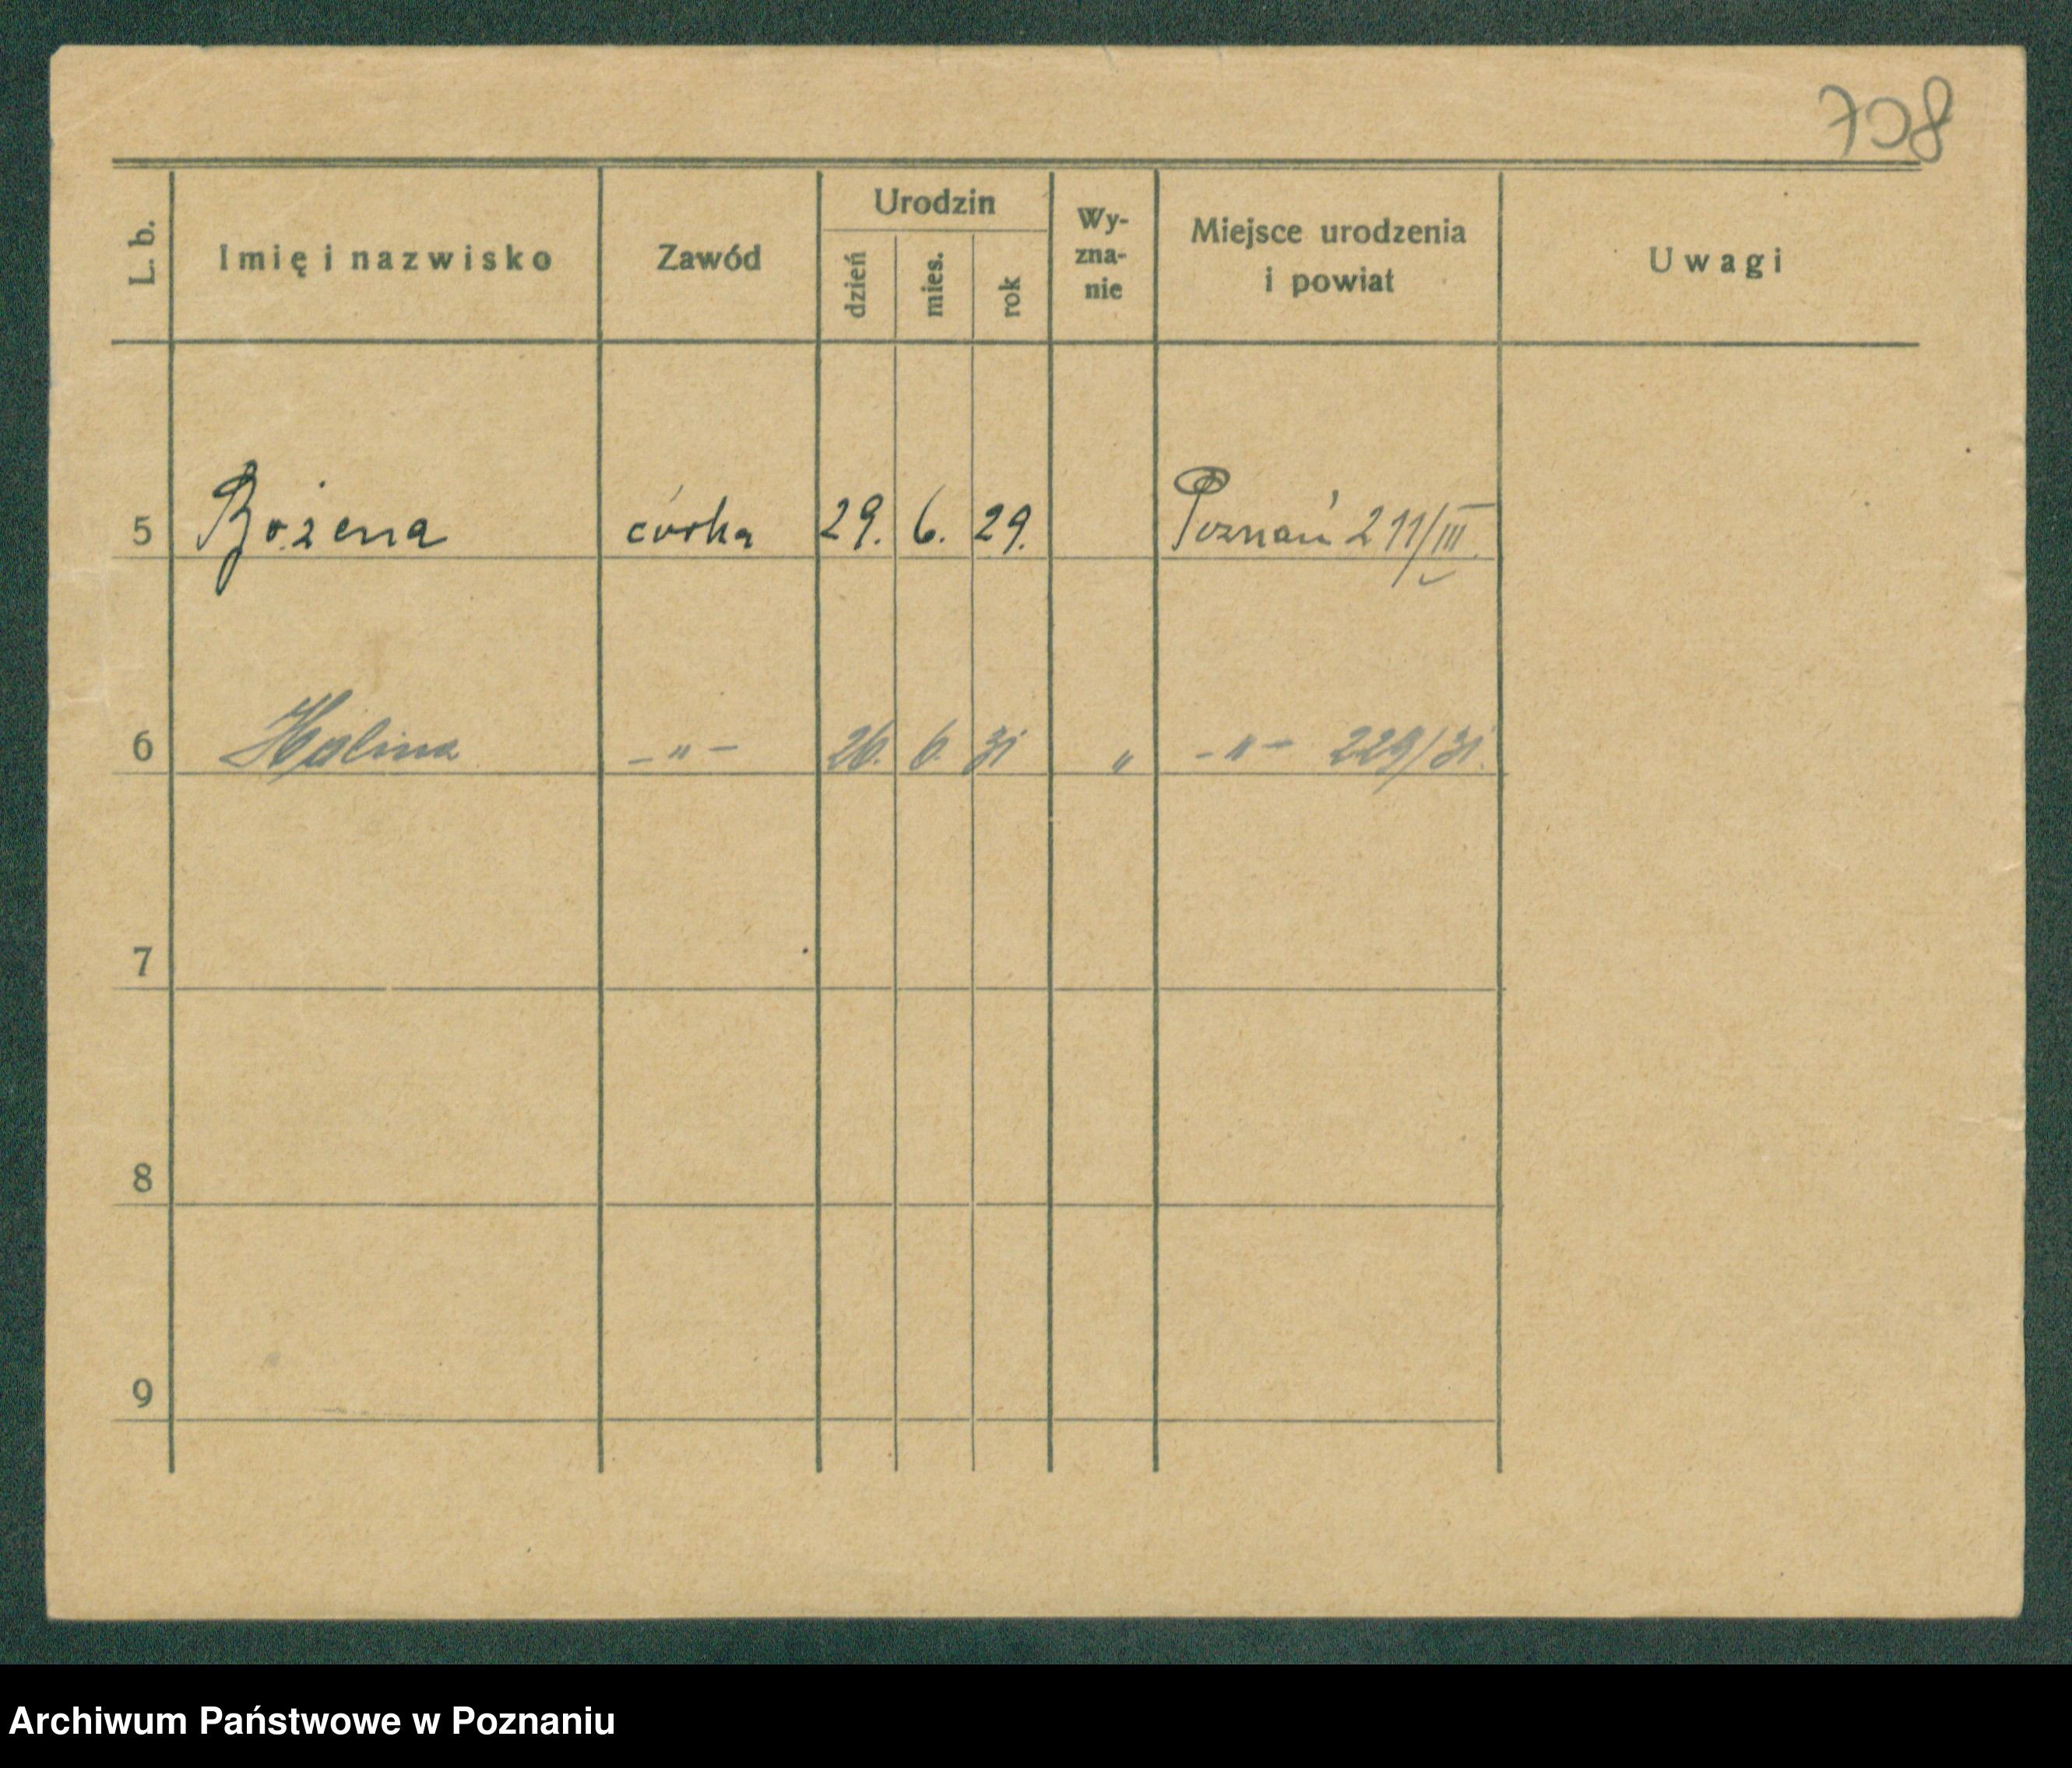 708
L. b. Imię i nazwisko Zawód Urodzin dzień mies. rok Wy-zna-nie Miejsce urodzenia i powiat Uwagi
5 Bożena córka 29. 6. 29. Poznań 211/III.
6 Halina -"- 26. 6. 31 " -"- 229/31.
7
8
9
Archiwum Państwowe w Poznaniu